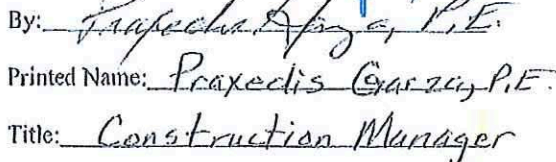 By: Praxedis Garza, P.E.
Printed Name: Praxedis Garza, P.E.
Title: Construction Manager